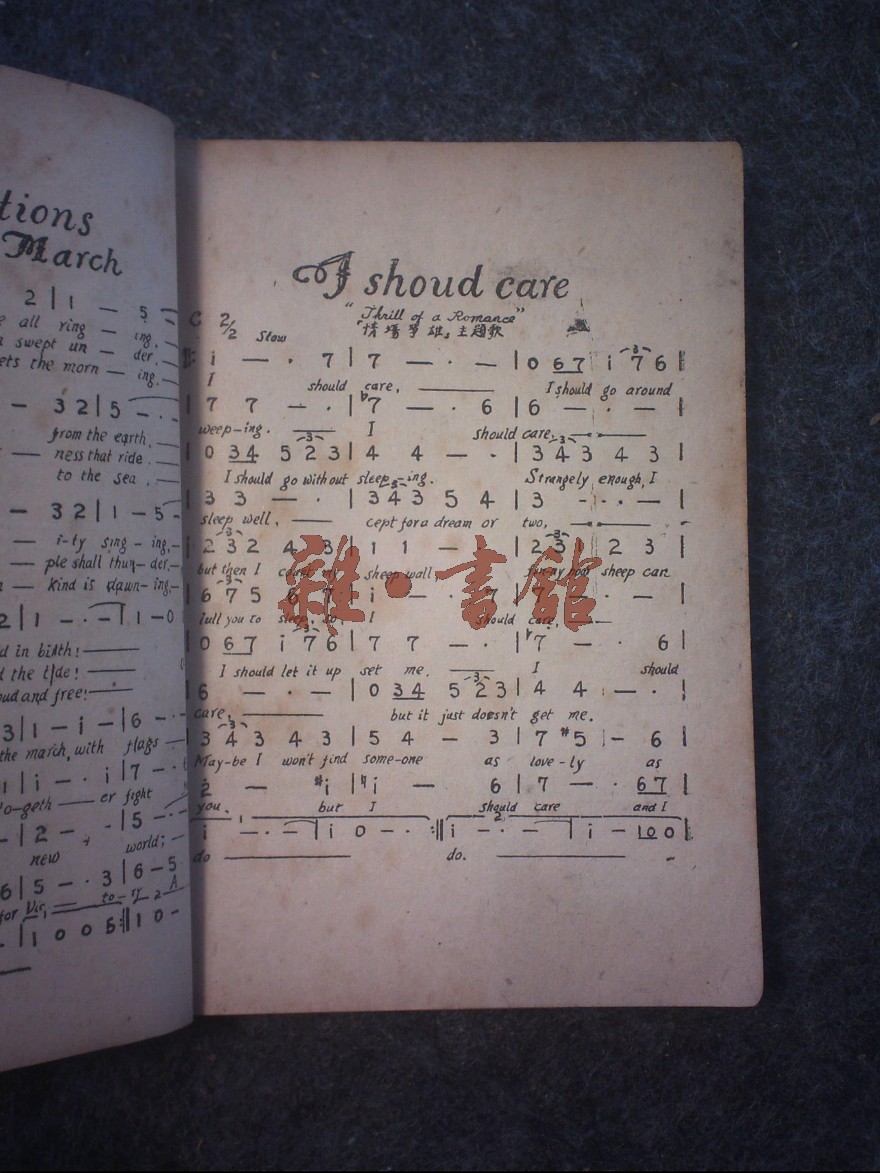 tions
March
2 | 1 — 5 —
all ring — ing.
swept un — der.
ets the morn — ing.
— 3 2 | 5 — ·
from the earth.
ness that ride.
to the sea.
— 3 2 | 1 — 5 —
i-ty sing-ing,—
ple shall thun-der,—
kind is dawn-ing,—
2 | 1 — · — | 1 — 0
d in birth!
d the tide!
oud and free!
3 | 1 — i — | 6 — ·
the march, with flags
i | i — · i | 7 — ·
to-geth — er fight
— | 2 — · | 5 —
new world;
6 | 5 — · 3 | 6 — 5
for Vic — to-ry A
— | 1 0 0 5 :|| 1 0 —
I shoud care
"Thrill of a Romance"
「情場爭雄」主題歌
C 2/2 Slow
i — · 7 | 7 — · — | 0 6 7 i 7 6 |
I should care, I should go around
7 7 — · | ♭7 — · 6 | 6 — · — |
weep-ing. I should care,
0 3 4 5 2 3 | 4 4 — · | 3 4 3 4 3 |
I should go without sleep-ing. Strangely enough, I
3 3 — · | 3 4 3 5 4 | 3 — · — |
sleep well, cept for a dream or two,
2 3 2 4 3 | 1 1 — · | 2 3 2 3
but then I count my sheep well fun-ny how sheep can
6 7 5 6 7 | i — · 7 | 7 — · —
lull you to sleep, so I should care,
0 6 7 i 7 6 | 7 7 — · | ♭7 — · 6 |
I should let it up set me. I should
6 — · — | 0 3 4 5 2 3 | 4 4 — · |
care, but it just doesn't get me.
3 4 3 4 3 | 5 4 — 3 | 7 #5 — 6 |
May-be I won't find some-one as love-ly as
2 — #i | ♮i — 6 | 7 — · 6 7 |
you. but I should care and I
i — · — | i 0 — · :|| i — · — | i — 0 0 ||
do do.
雜·書館